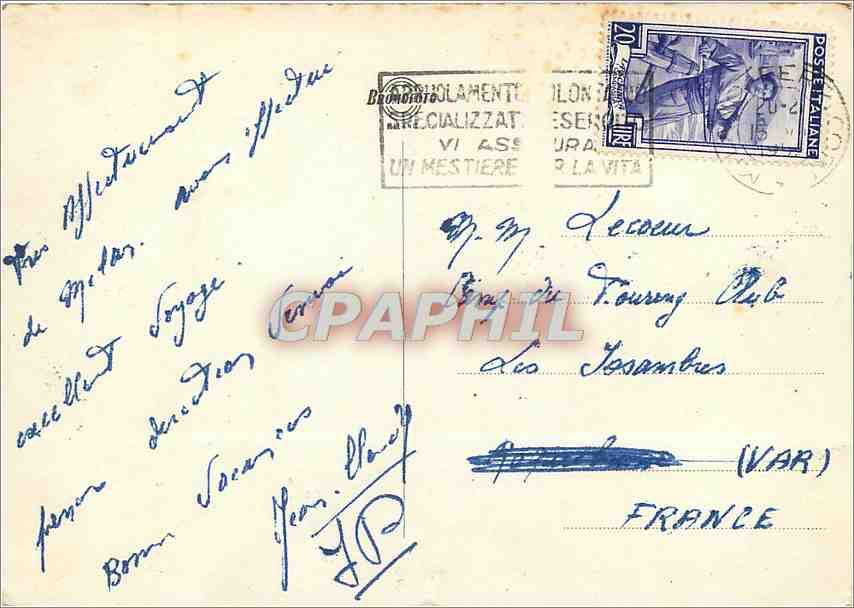 BROMOFOTO
ARRUOLAMENTO VOLON
SPECIALIZZATI ESERCI
VI ASSICURA
UN MESTIERE PER LA VITA
20
LIRE
POSTE ITALIANE
Très affectueusement
de Milan. avons effectué
excellent voyage.
direction
Bonnes Vacances
Jean-Claude
M. M. Lecoeur
Camp du Touring Club
Les Issambres
(VAR)
FRANCE
CPAPHIL